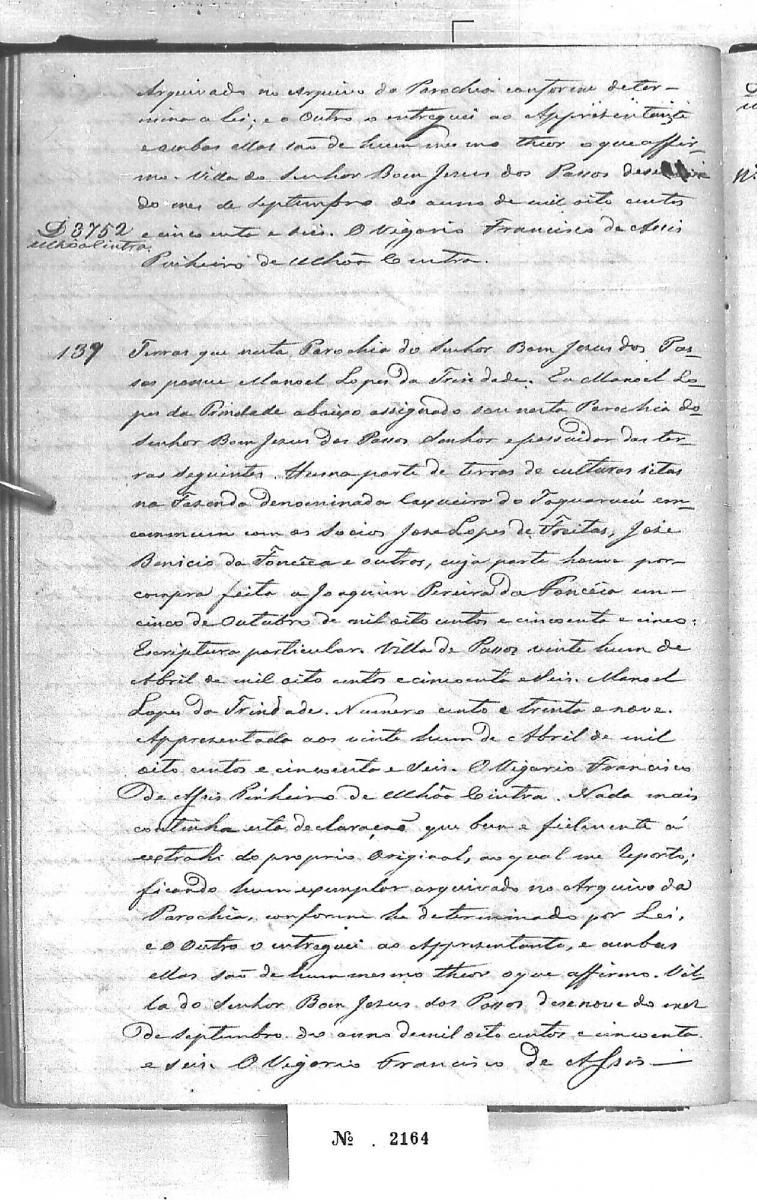 Arquivado no Arquivo da Parochia conforme deter-
mina a Lei; e o Outro o entreguei ao Appresentante
e ambas ellas são de hum mesmo theor o que affir-
mo. Villa do Senhor Bom Jesus dos Passos
do mes de Septembro do anno de mil oito centos
D 3752 e cincoenta e seis. O Vigario Francisco de Assis
Uchôa Cintra.
Pinheiro de Uchôa Cintra.
139 Terras que nesta Parochia do Senhor Bom Jesus dos Pas-
sos possue Manoel Lopes da Trindade. Eu Manoel Lo-
pes da Trindade abaixo assignado sou nesta Parochia do
Senhor Bom Jesus dos Passos Senhor e possuidor das ter-
ras seguintes. Huma parte de terras de culturas sitas
na Fazenda denominada Caxueira do Taquarucú em
commum com os Socios José Lopes de Freitas, José
Benicio da Fonceca e outros, cuja parte houve por-
compra feita a Joaquim Pereira da Fonceca em-
cinco de Outubro de mil oito centos e cincoenta e cinco:
Escriptura particular. Villa de Passos vinte hum de
Abril de mil oito centos e cincoenta e seis. Manoel
Lopes da Trindade. Numero cento e trinta e nove.
Appresentada aos vinte hum de Abril de mil
oito centos e cincoenta e seis. O Vigario Francisco
de Assis Pinheiro de Uchôa Cintra. Nada mais
continha esta declaração que bem e fielmente a
extrahi do proprio Original, ao qual me reporto;
ficando hum exemplar arquivado no Arquivo da
Parochia, conforme he determinado por Lei,
e o Outro o entreguei ao Appresentante, e ambas
ellas são de hum mesmo theor o que affirmo. Vil-
la do Senhor Bom Jesus dos Passos desenove do mez
de Septembro do anno de mil oito centos e cincoenta
e seis. O Vigario Francisco de Assis
№ . 2164